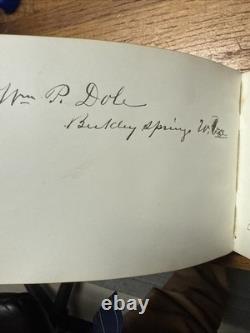 Wm P. Dole
Berkley Springs W. Va.